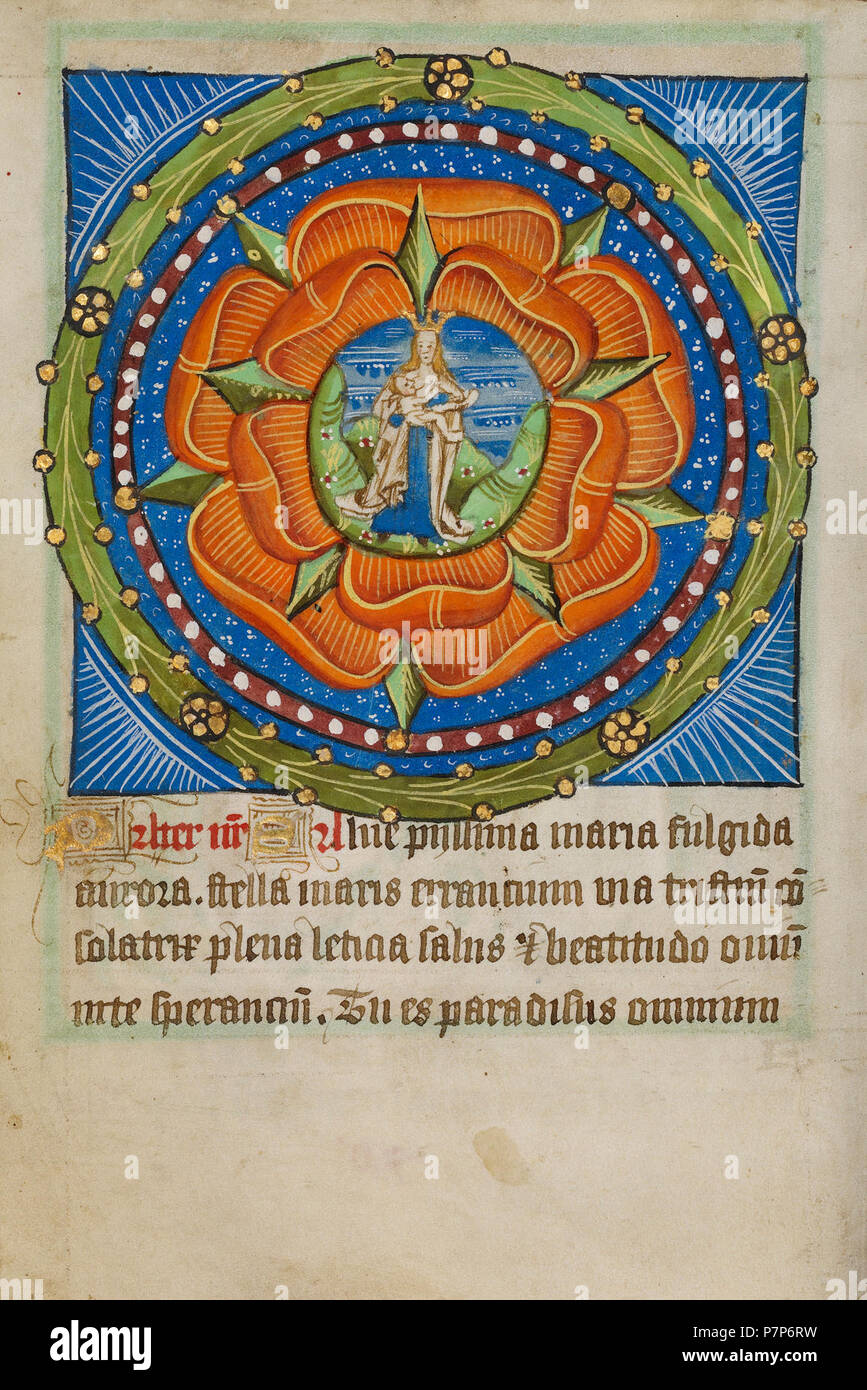 Pater nr̄ Alue pijssima maria fulgida
aurora. stella maris errancium via tristiū cō
solatrix plena leticia salus & beatitudo oīm̄
in te speranciū. Tu es paradisus omnium
alamy
Image ID: P7P6RW
www.alamy.com